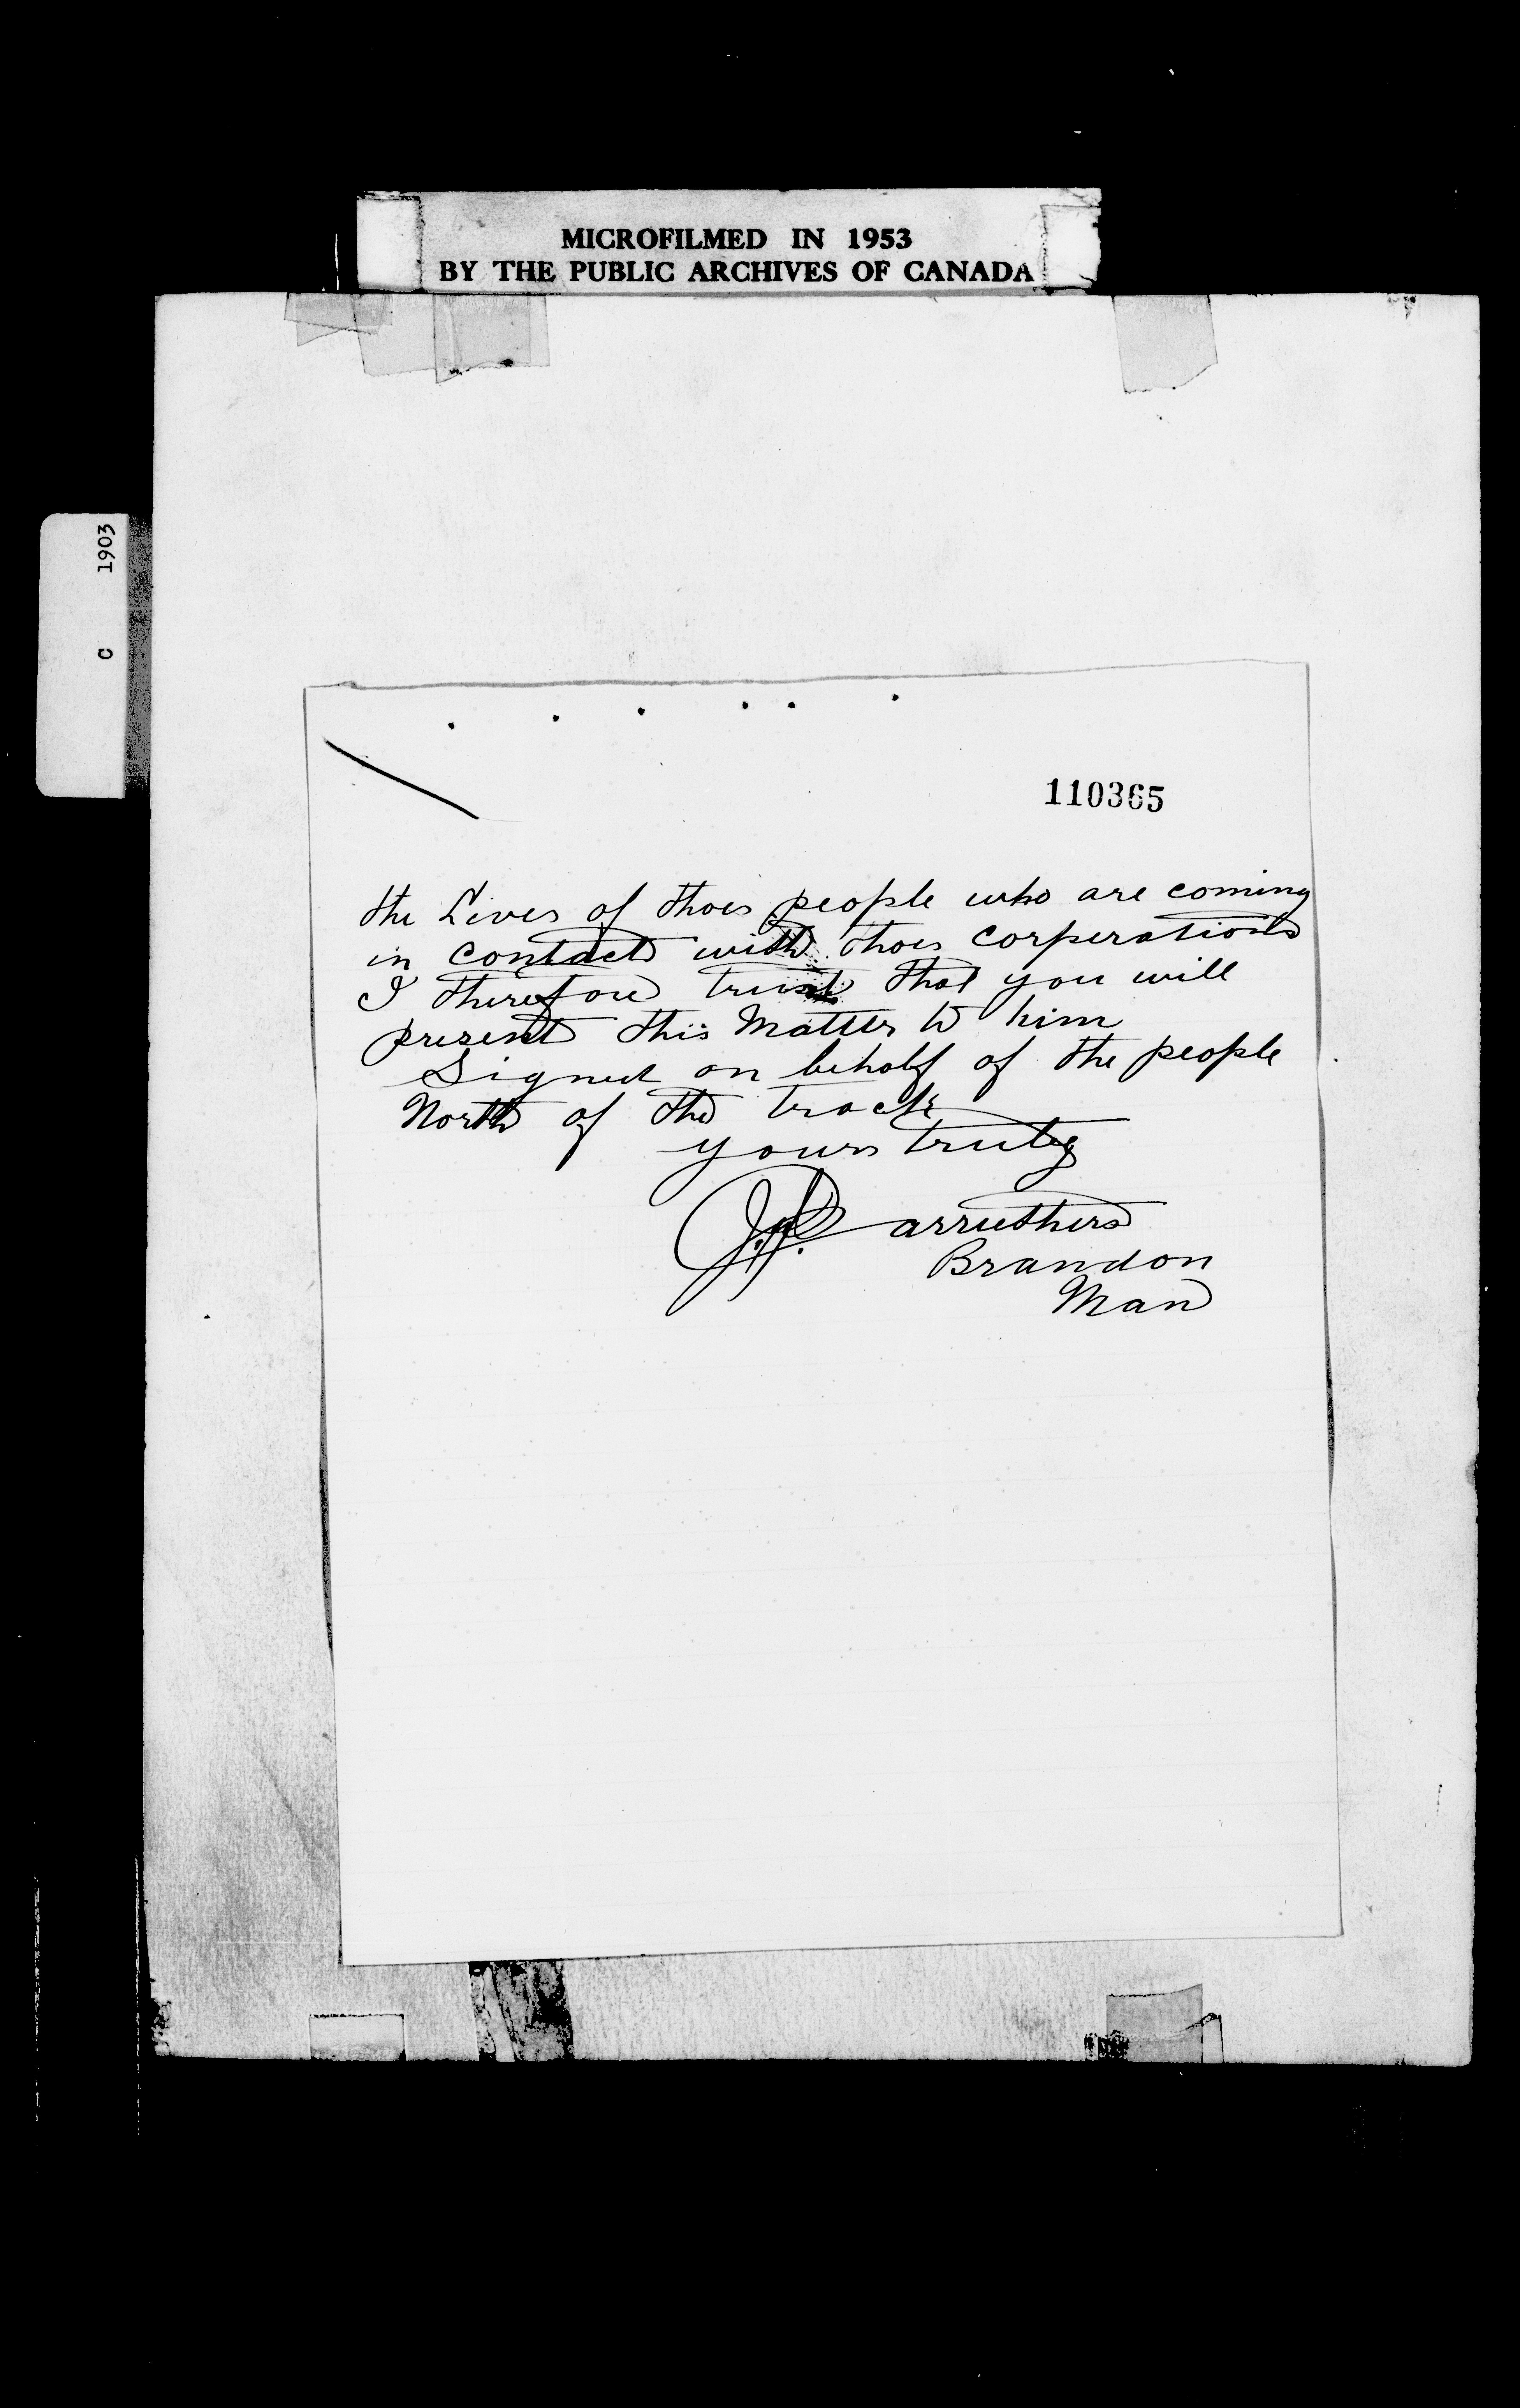 MICROFILMED IN 1953
BY THE PUBLIC ARCHIVES OF CANADA
C 1903
110365
the Lives of thoes people who are coming
in contact with thoes corperations
I therefore trust that you will
present this Matter to him
Signed on behalf of the people
North of the track
yours truly
Carruthers
Brandon
Man